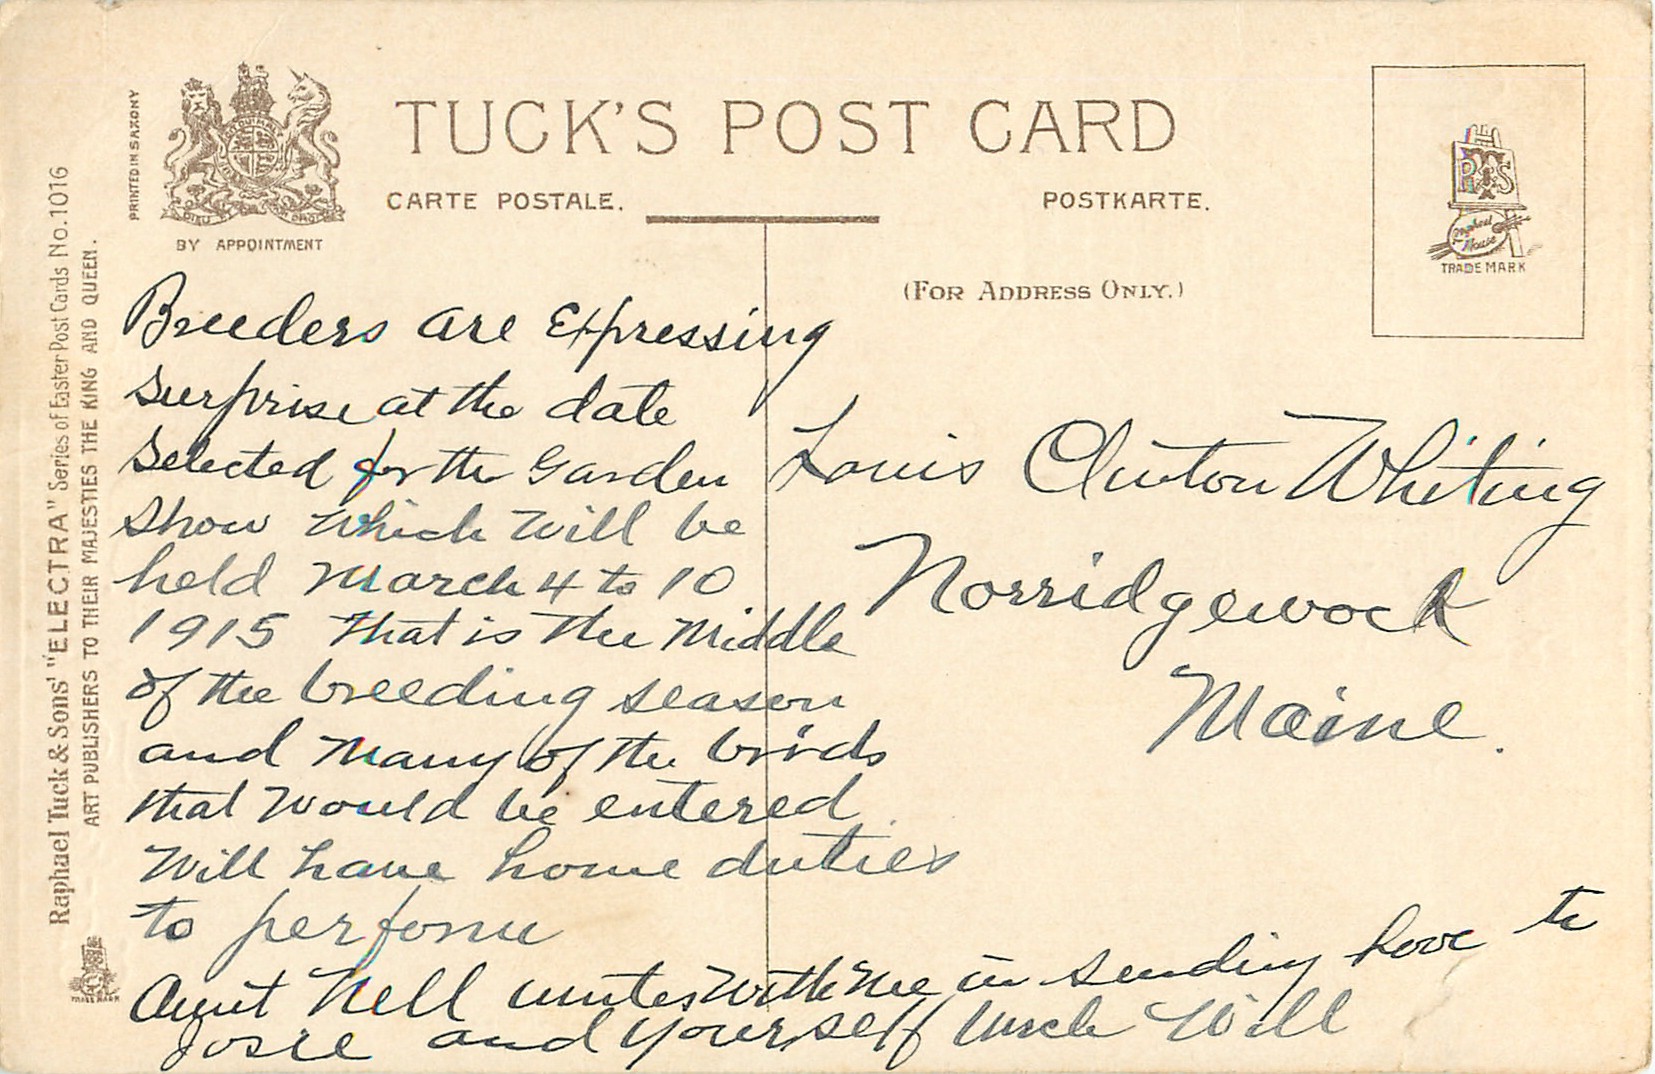 TUCK'S POST CARD
CARTE POSTALE.
POSTKARTE.
PRINTED IN SAXONY
DIEU ET MON DROIT
BY APPOINTMENT
(FOR ADDRESS ONLY.)
RTS
Raphael House
TRADE MARK
Raphael Tuck & Sons' "ELECTRA" Series of Easter Post Cards No. 1016
ART PUBLISHERS TO THEIR MAJESTIES THE KING AND QUEEN.
TRADE MARK
Breeders are Expressing
Surprise at the date
Selected for the Garden
Show which will be
held March 4 to 10
1915 that is the Middle
of the breeding season
and many of the birds
that would be entered
Will have home duties
to perform
Aunt Nell unites with me in sending Love to
Josie and yourself Uncle Will
Louis Clinton Whiting
Norridgewock
Maine.